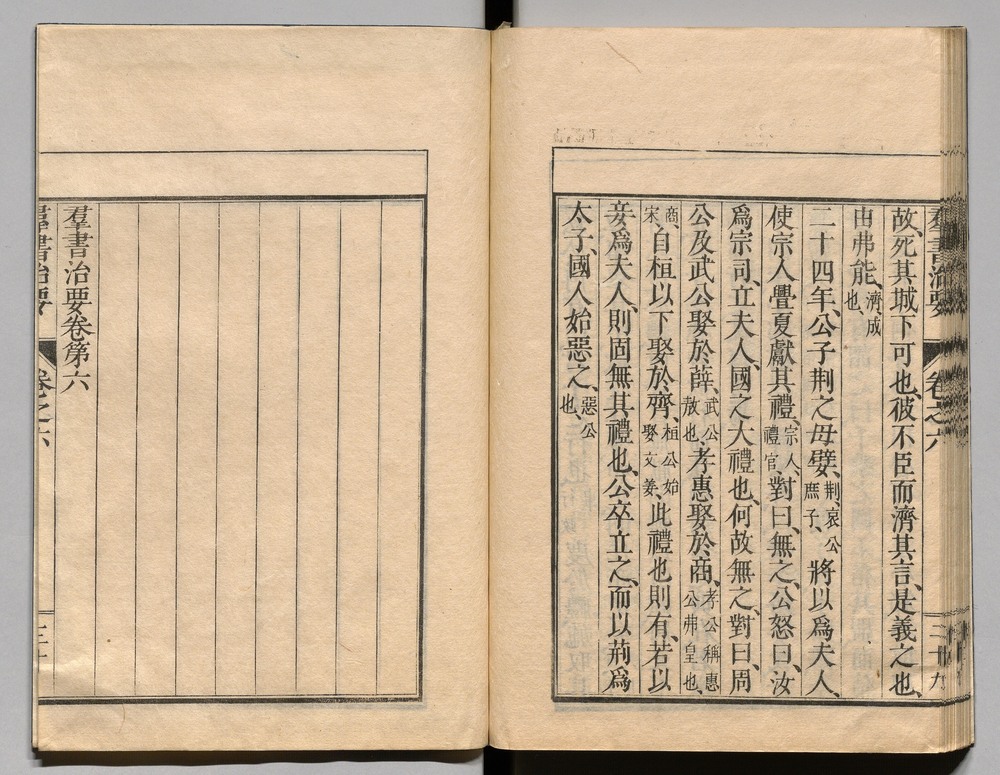 羣書治要 卷之六 二十九
故、死其城下可也、彼不臣而濟其言、是義之也、
由弗能、濟成也、
二十四年、公子荆之母嬖、荆哀公庶子、將以爲夫人、
使宗人釁夏獻其禮、宗人禮官、對曰、無之、公怒曰、汝
爲宗司、立夫人、國之大禮也、何故無之、對曰、周
公及武公娶於薛、武公敖也、孝惠娶於商、孝公稱惠公弗皇也、
商宋、自桓以下娶於齊、桓公始娶文姜、此禮也則有、若以
妾爲夫人、則固無其禮也、公卒立之、而以荊爲
太子、國人始惡之、惡公也、
羣書治要卷第六
羣書治要 卷之六